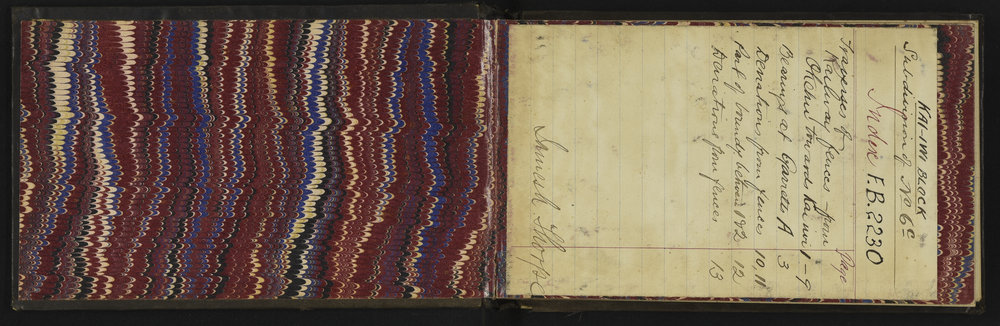 KAI-IWI BLOCK
Subdivision of No 6c
Index F.B. 2230
Page
Traverges of
Railway fences from
Okehu towards Kai iwi 1-9
Bearings at Garrets A 3
Deviations from fences 10.11
Part of bound. between 1 & 2 12
Deviations from fences 13
James H Thorpe